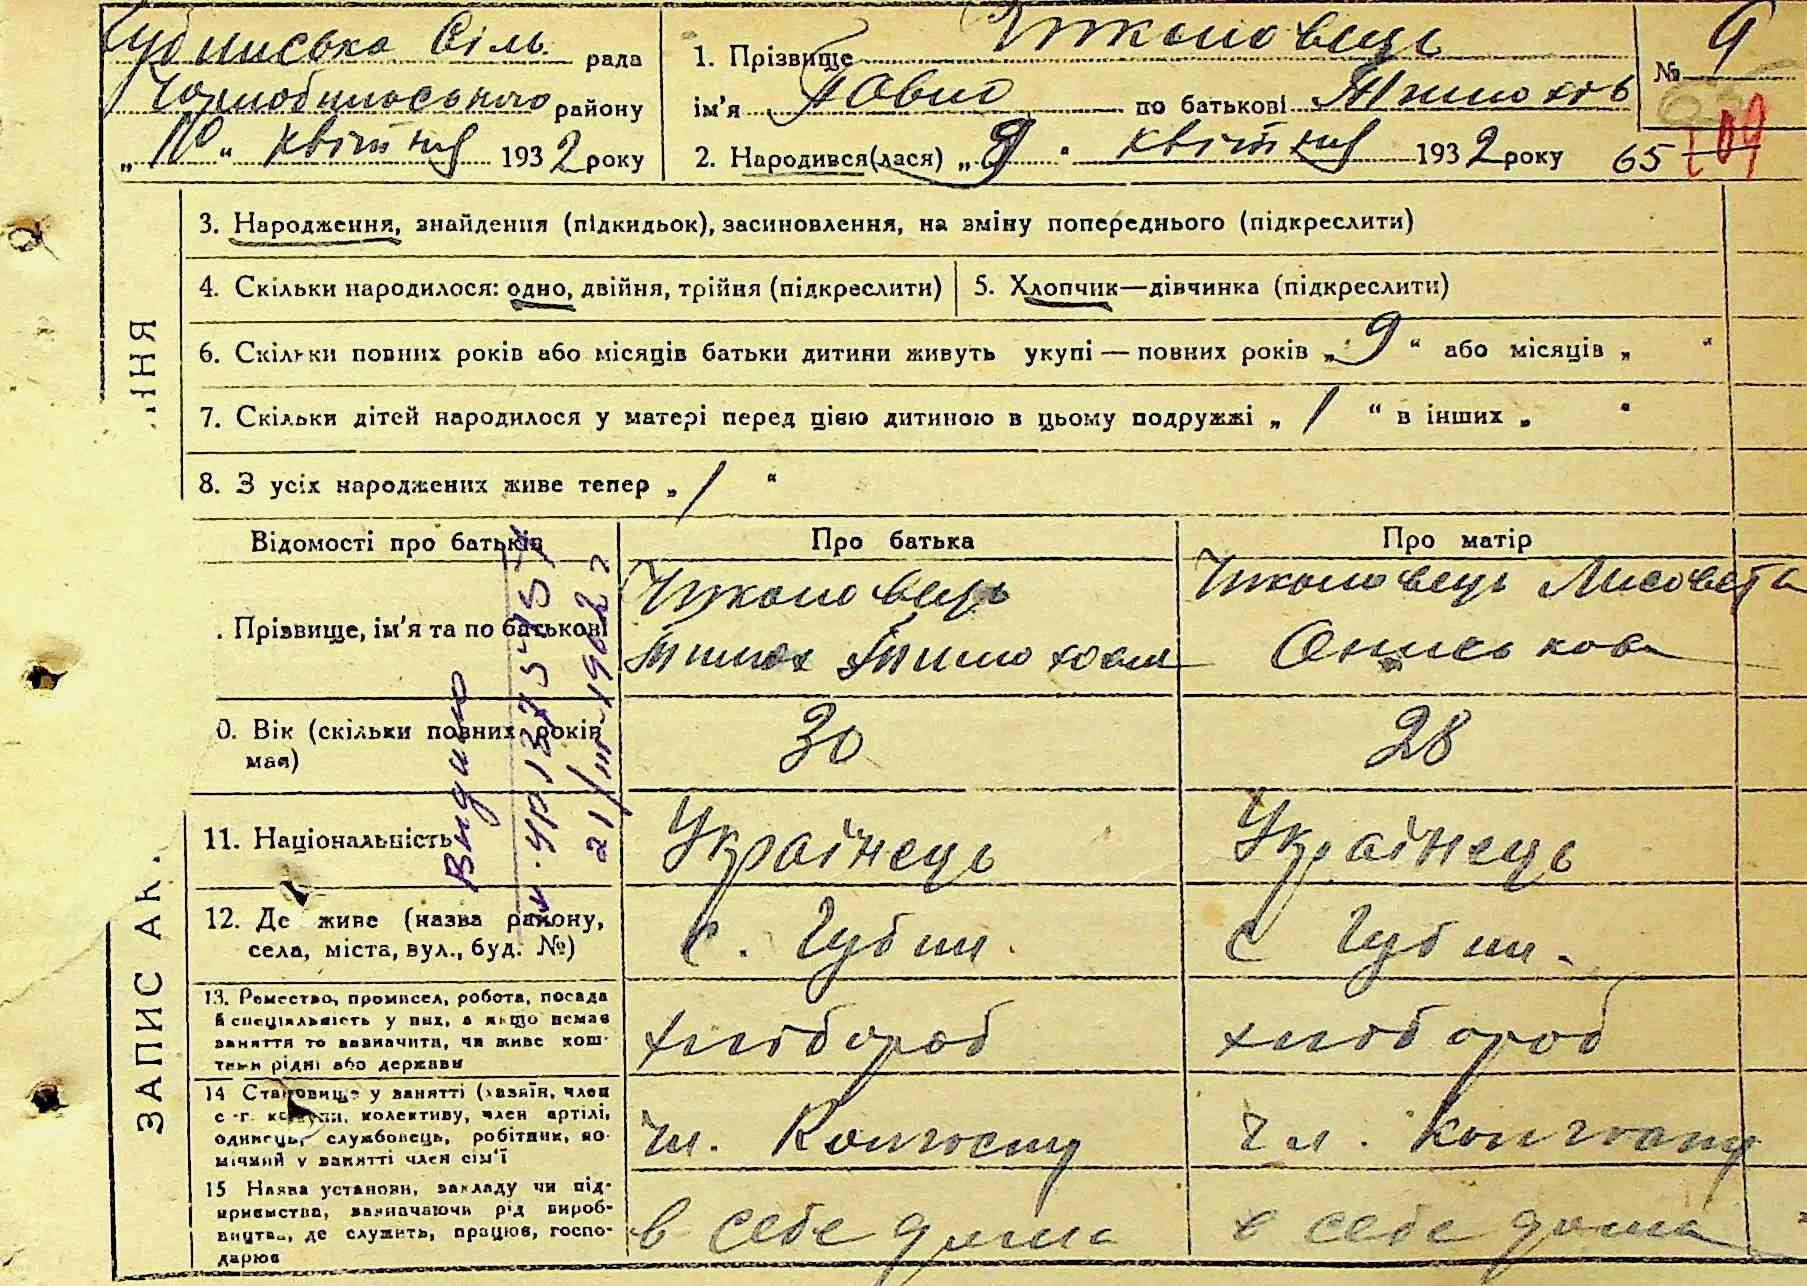 Губинська Сіль. рада
Чорнобильського району
„10“ квітня 1932 року
1. Прізвище Школовець
ім'я Павло по батькові Тимохов
2. Народився(лася) „9“ квітня 1932 року
№ 9
65 109
3. Народження, знайдення (підкидьок), засиновлення, на зміну попереднього (підкреслити)
4. Скільки народилося: одно, двійня, трійня (підкреслити)
5. Хлопчик—дівчинка (підкреслити)
6. Скільки повних років або місяців батьки дитини живуть укупі — повних років „9“ або місяців „ “
7. Скільки дітей народилося у матері перед цією дитиною в цьому подружжі „1“ в інших „ “
8. З усіх народжених живе тепер „1“
Відомості про батьків
Про батька
Про матір
. Прізвище, ім'я та по батькові
Школовець
Тимох Тимохов
Школовець Лисовета
Ониськова
0. Вік (скільки повних років
має)
30
28
11. Національність
Українець
Українець
12. Де живе (назва району,
села, міста, вул., буд. №)
с. Губин.
с Губин.
13. Ремество, промисел, робота, посада
й спеціяльність у них, а якщо немає
заняття то зазначити, чи живе кош-
тами рідні або держави
хлібороб
хлібороб
14 Становище у занятті (хазяїн, член
с.-г. комуни, колективу, член артілі,
одинець, службовець, робітник, по-
мічний у занятті член сім'ї
чл. Колгоспу
чл. колгоспу
15 Назва установи, закладу чи під-
приємства, зазначаючи рід вироб-
ництва, де служить, працює, госпо-
дарює
в себе дома
в себе дома
ЗАПИС АК.
ІННЯ
Видано
21/III-1962 г